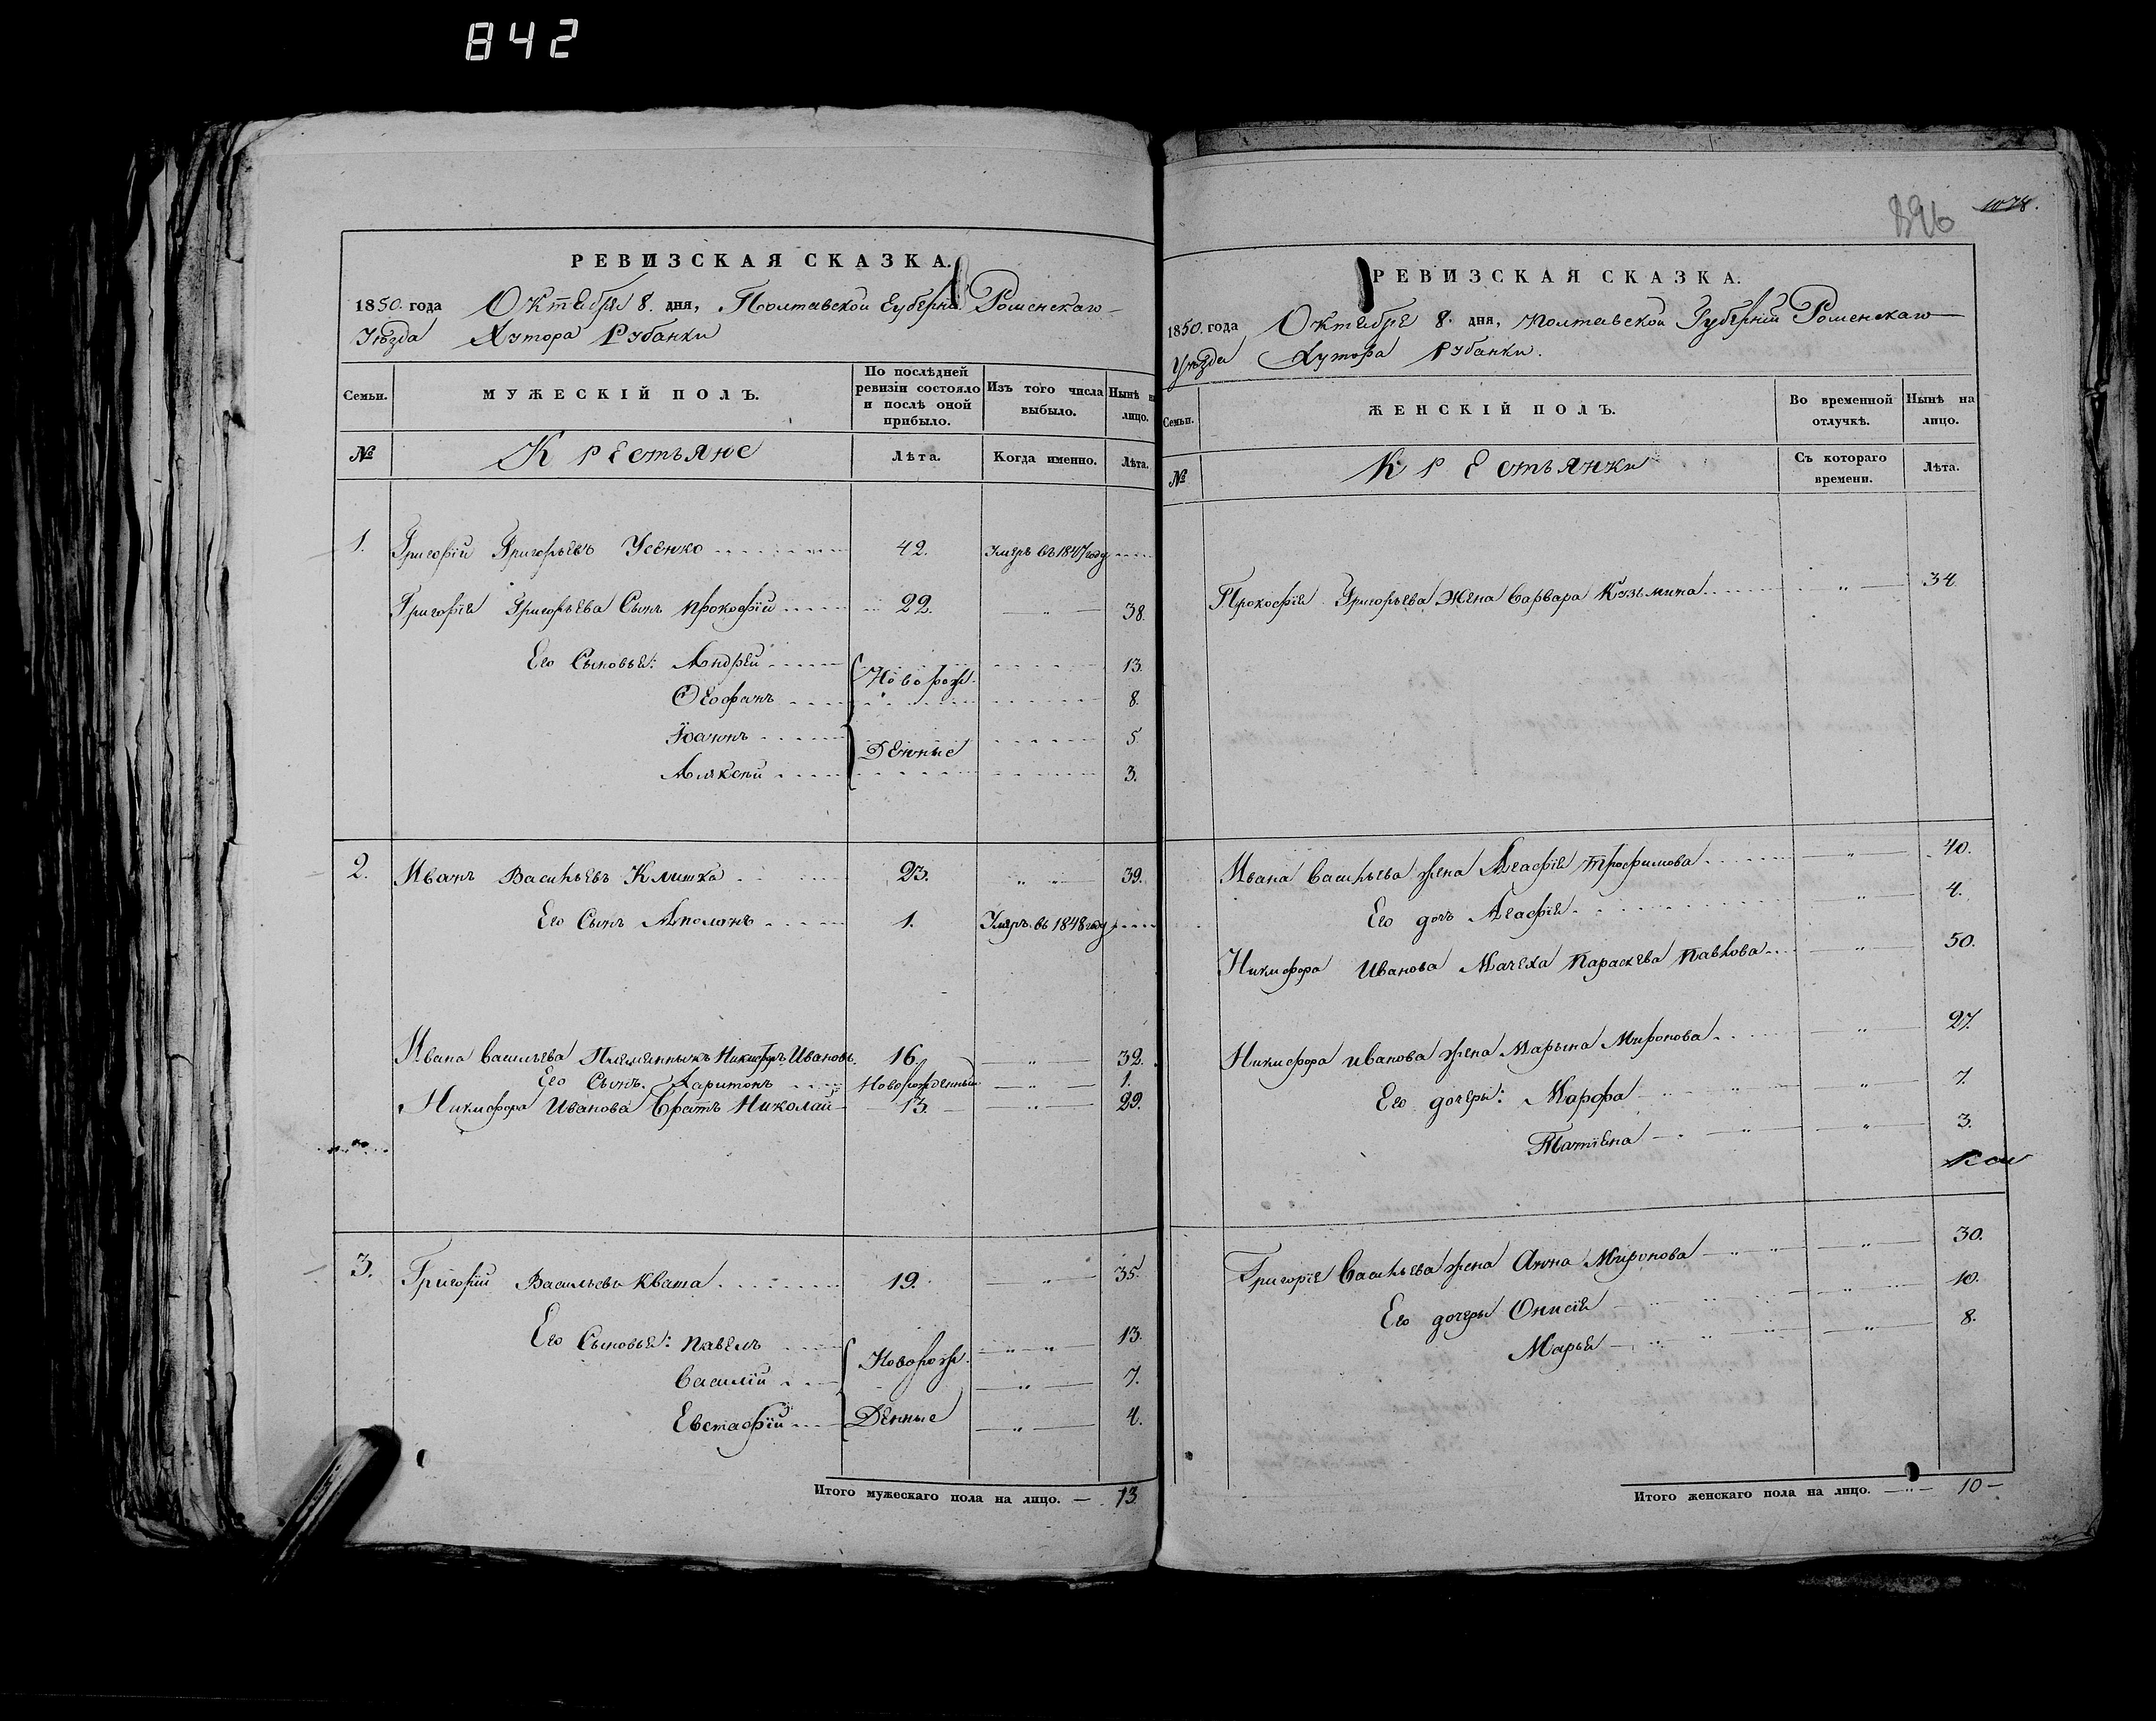 842
РЕВИЗСКАЯ СКАЗКА.
1850. года Октября 8. дня, Полтавской Губерніи Роменскаго
Уѣзда Хутора Рубанки
Семьи. МУЖЕСКІЙ ПОЛЪ. По послѣдней ревизіи состояло и послѣ оной прибыло. Изъ того числа выбыло. Нынѣ на лицо.
№ Крестьяне Лѣта. Когда именно. Лѣта.
1. Григорій Григорьевъ Усенко 42. Умеръ въ 1847 году
Григорія Григорьева Сынъ Прокофій 22. " 38.
Его Сыновья: Андрей Новорож. 13.
Феофанъ 8.
Іоаннъ Денные 5
Алексей 3.
2. Иванъ Васильевъ Клишка 23. " " 39.
Его Сынъ Аполонъ 1. Умеръ въ 1848 году
Ивана Васильева Племянникъ Никифоръ Ивановъ. 16 " 32.
Его Сынъ Харитонъ Новорожденный " 1.
Никифора Иванова Братъ Николай 13. " 29.
3. Григорій Васильевъ Квата 19. " 35.
Его Сыновья: Павелъ Новорож. " " 13.
Василій " 7.
Евстафій Денные " 4.
Итого мужескаго пола на лицо. — 13.
896 1078.
РЕВИЗСКАЯ СКАЗКА.
1850. года Октября 8. дня, Полтавской Губерніи Роменскаго
Уѣзда Хутора Рубанки.
Семьи. ЖЕНСКІЙ ПОЛЪ. Во временной отлучкѣ. Нынѣ на лицо.
№ Крестьянки Съ котораго времени. Лѣта.
Прокофія Григорьева Жена Варвара Козьмина " 34.
Ивана Васильева жена Агафія Трофимова " 40.
Его дочь Агафія " 4.
Никифора Иванова Мачеха Параскева Павлова " 50.
Никифора Иванова жена Марьина Миронова " 27.
Его дочери: Марфа " 7.
Татіяна " 3.
Григорія Васильева жена Анна Миронова " 30.
Его дочери Онисія " 10.
Марья " 8.
Итого женскаго пола на лицо. — " — 10 —